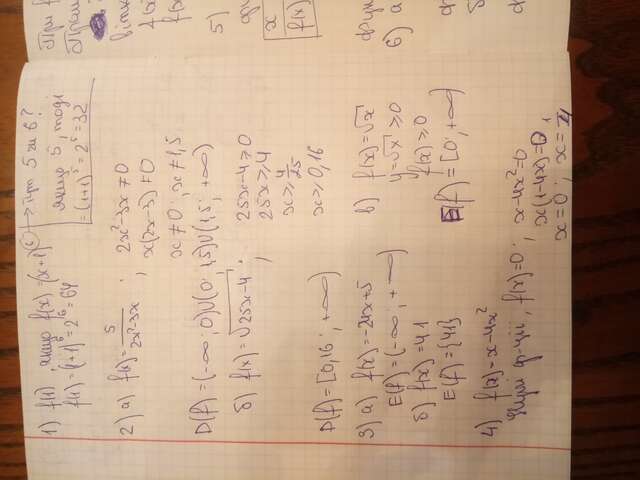 1) f(1), якщо f(x)=(x+1)⁶ → При 5 чи 6?
f(1)=(1+1)⁶=2⁶=64
якщо 5, тоді
=(1+1)⁵=2⁵=32
2) а) f(x)=5/(2x²-3x) ; 2x²-3x≠0
x(2x-3)≠0
x≠0 ; x≠1,5
D(f)=(-∞; 0)∪(0; 1,5)∪(1,5; +∞)
б) f(x)=√(25x-4) ; 25x-4≥0
25x≥4
x≥4/25
x≥0,16
D(f)=[0,16; +∞)
3) а) f(x)=-24x+5
E(f)=(-∞; +∞)
б) f(x)=41
E(f)={41}
в) f(x)=√x
y=√x≥0
f(x)≥0
E(f)=[0; +∞)
4) f(x)=x-4x²
Нулі ф-ції, f(x)=0; x-4x²=0
x(1-4x)=0
x=0 ; x=1/4
5)
x
f(x)
6) а